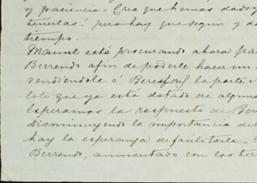 y paciencia. Creo que hemos dado
tenerlas! pero hay que seguir y da
tiempo.
Manuel está procurando ahora pa
Berrendo afin de poderle hacer un
vendiéndole á Beresford la parte
lote que ya está dotado de alguna
esperamos la respuesta de Ber
Disminuyendo la importancia de
hay la esperanza de facilitarle
Berrendo, aumentado con las tier